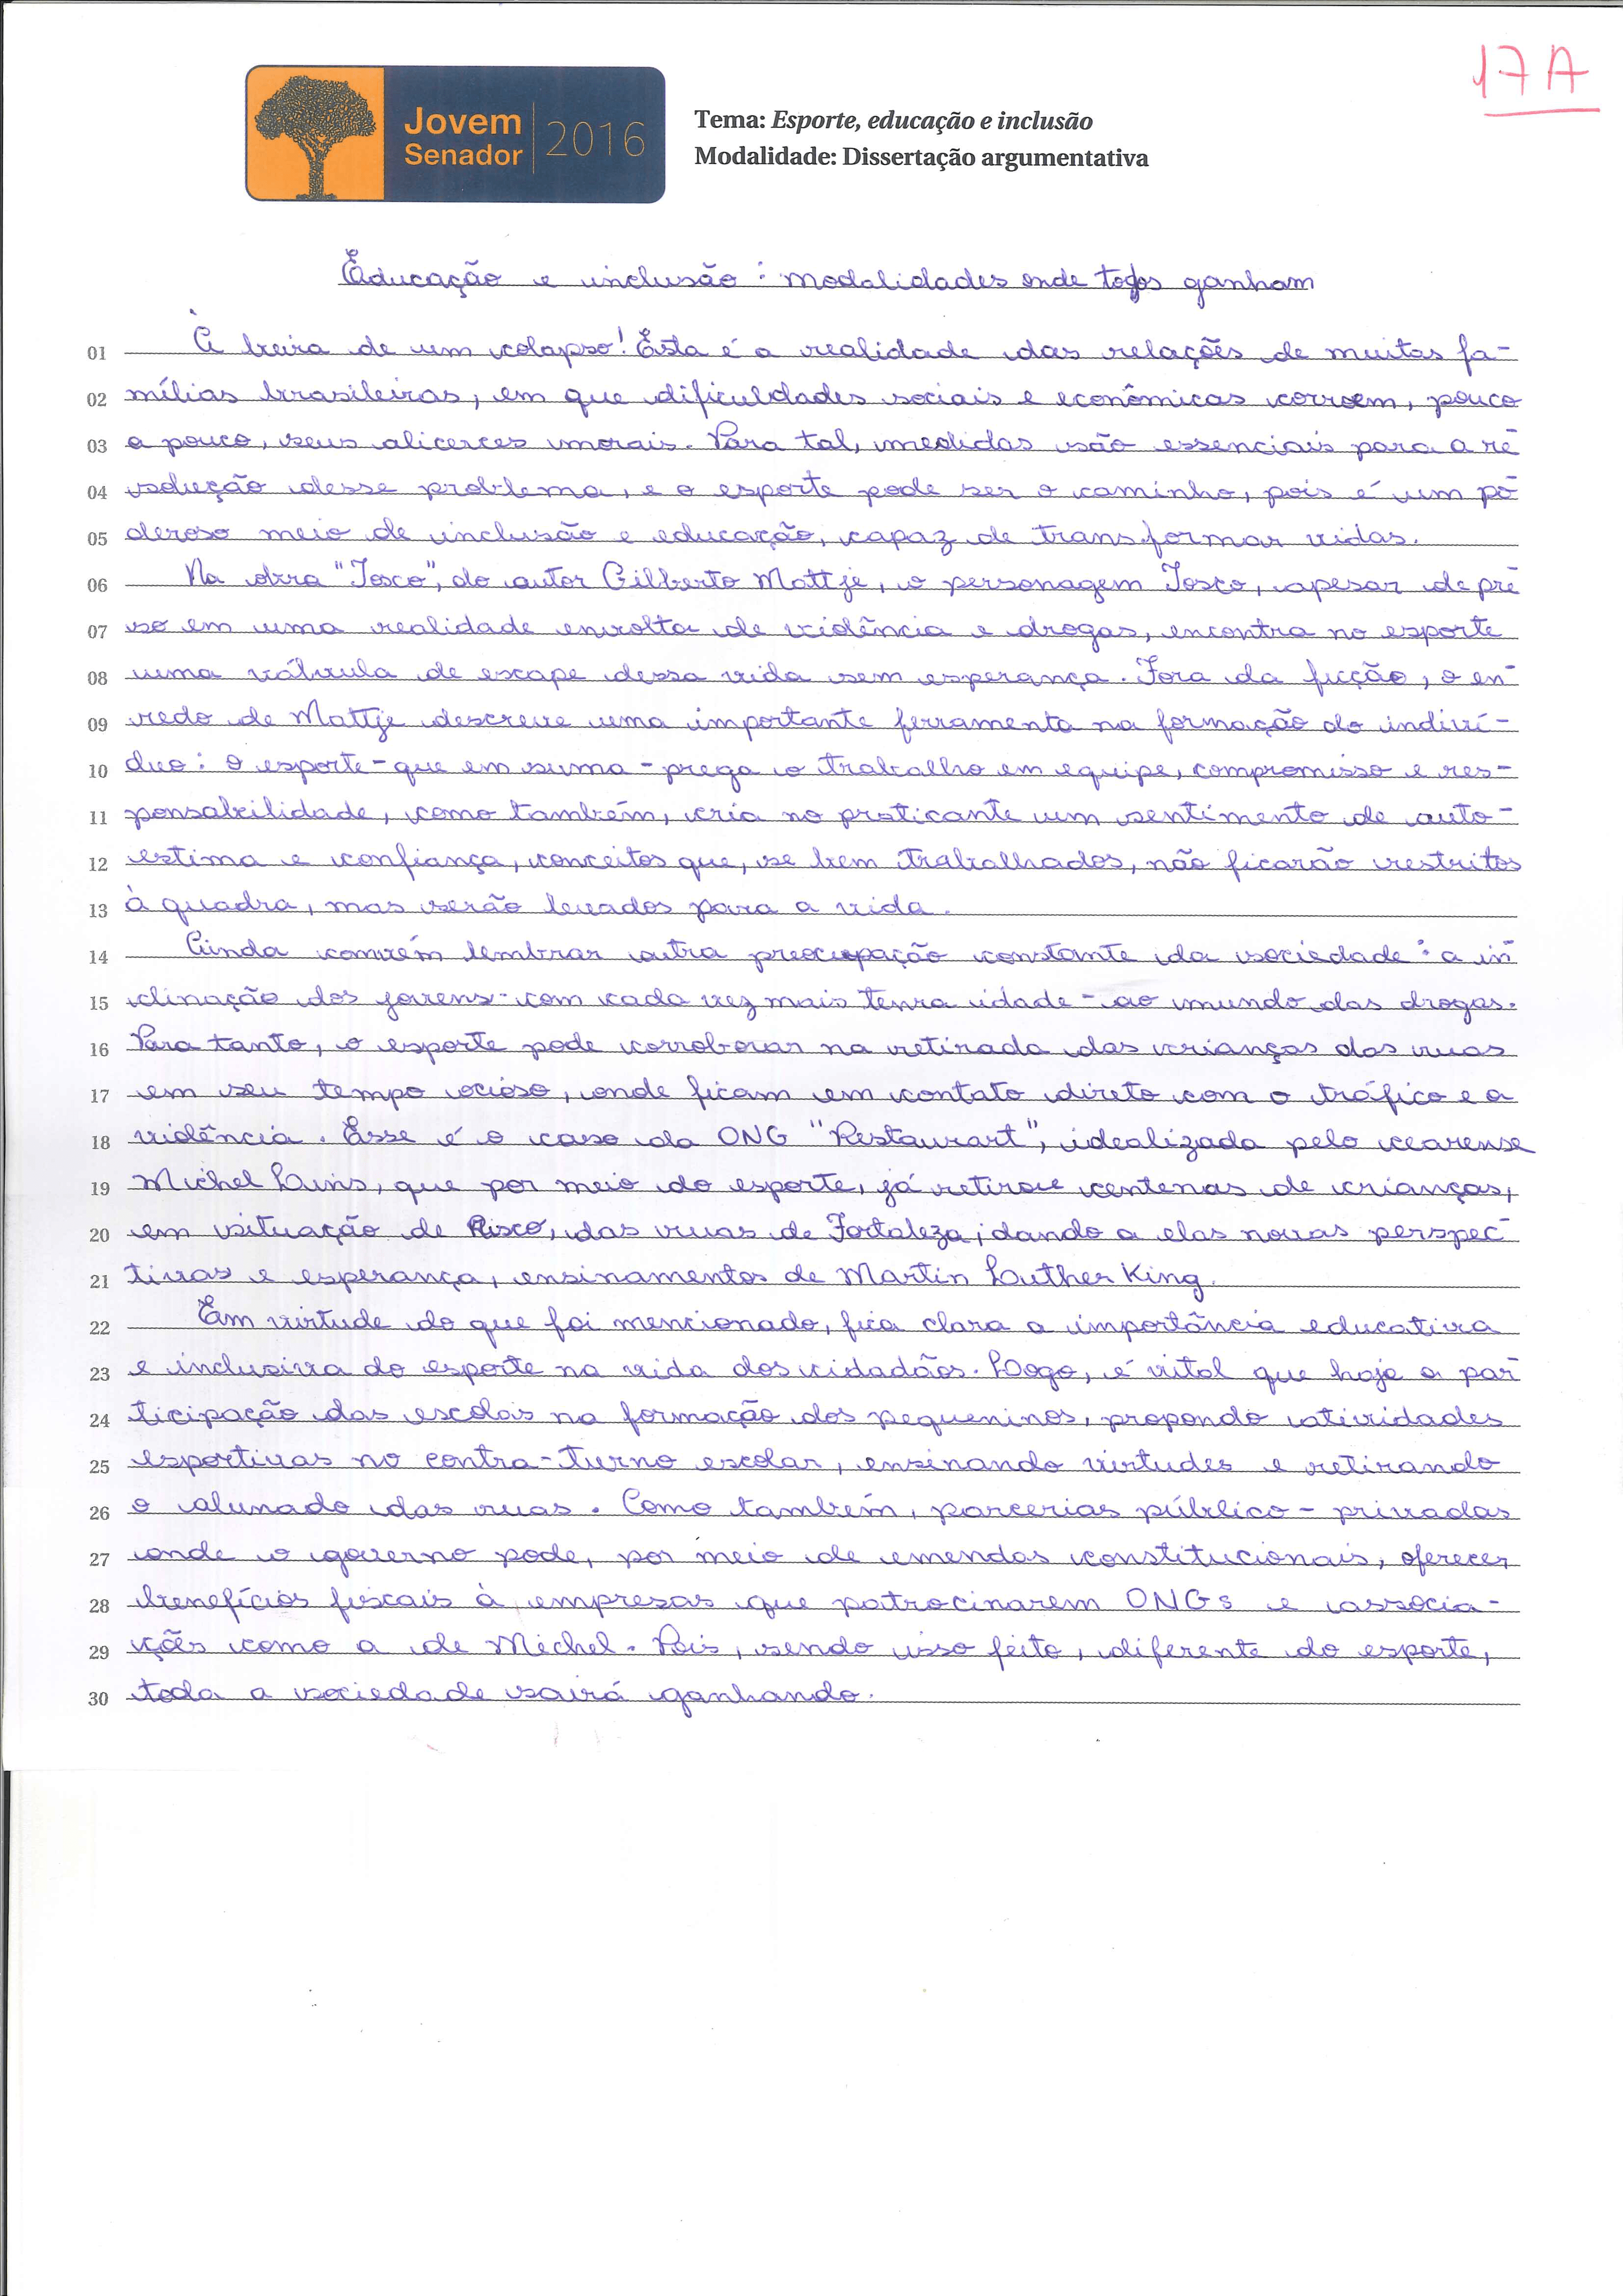 17A
Jovem
Senador
2016
Tema: Esporte, educação e inclusão
Modalidade: Dissertação argumentativa
Educação e inclusão: modalidades onde todos ganham
01 À beira de um colapso! Esta é a realidade das relações de muitas fa-
02 mílias brasileiras, em que dificuldades sociais e econômicas corroem, pouco
03 a pouco, seus alicerces morais. Para tal, medidas são essenciais para a re-
04 solução desse problema, e o esporte pode ser o caminho, pois é um po-
05 deroso meio de inclusão e educação, capaz de transformar vidas.
06 Na obra "Tosco", do autor Gilberto Mattje, o personagem Tosco, apesar de pre-
07 so em uma realidade envolta de violência e drogas, encontra no esporte
08 uma válvula de escape dessa vida sem esperança. Fora da ficção, o en-
09 redo de Mattje descreve uma importante ferramenta na formação do indiví-
10 duo: o esporte - que em suma - prega o trabalho em equipe, compromisso e res-
11 ponsabilidade, como também, cria no praticante um sentimento de auto-
12 estima e confiança, conceitos que, se bem trabalhados, não ficarão restritos
13 à quadra, mas serão levados para a vida.
14 Ainda convém lembrar outra preocupação constante da sociedade: a in-
15 clinação dos jovens - com cada vez mais tenra idade - ao mundo das drogas.
16 Para tanto, o esporte pode corroborar na retirada das crianças das ruas
17 em seu tempo ocioso, onde ficam em contato direto com o tráfico e a
18 violência. Esse é o caso da ONG "Restaurart", idealizada pelo cearense
19 Michel Lins, que por meio do esporte, já retirou centenas de crianças,
20 em situação de Risco, das ruas de Fortaleza, dando a elas novas perspec-
21 tivas e esperança, ensinamentos de Martin Luther King.
22 Em virtude do que foi mencionado, fica clara a importância educativa
23 e inclusiva do esporte na vida dos cidadãos. Logo, é vital que haja a par-
24 ticipação das escolas na formação dos pequeninos, propondo atividades
25 esportivas no contra-turno escolar, ensinando virtudes e retirando
26 o alunado das ruas. Como também, parcerias público-privadas
27 onde o governo pode, por meio de emendas constitucionais, oferecer
28 benefícios fiscais à empresas que patrocinarem ONGs e associa-
29 ções como a de Michel. Pois, sendo isso feito, diferente do esporte,
30 toda a sociedade sairá ganhando.